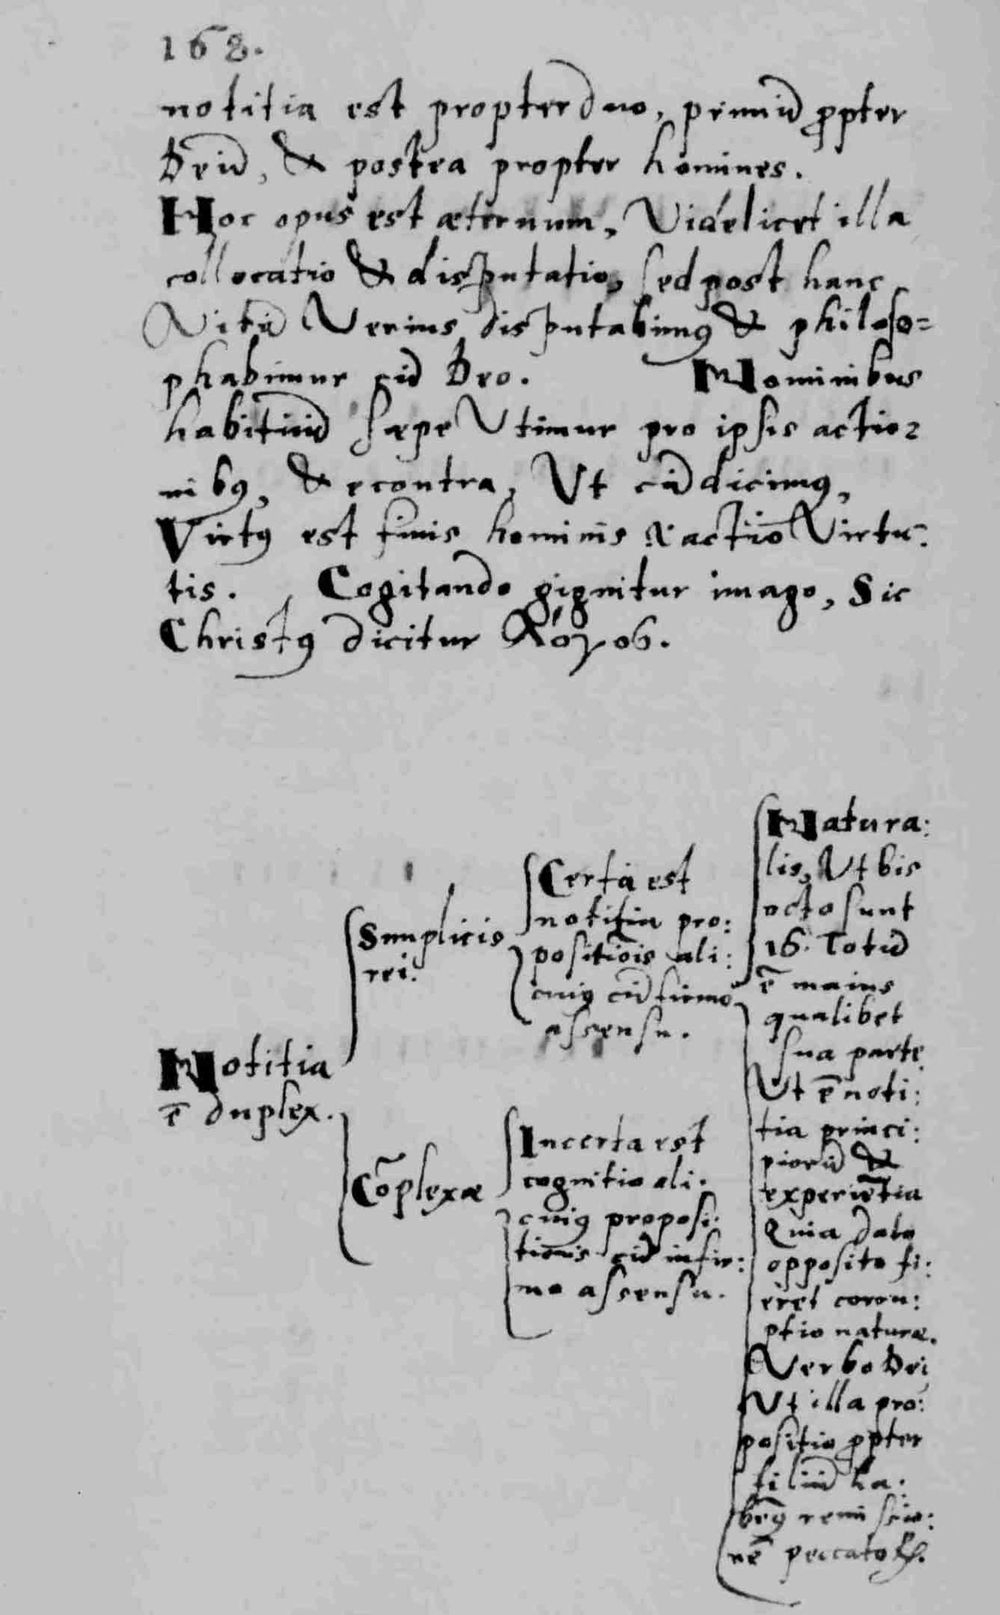 168.
notitia est propter duo, primũ ꝓpter
Deũ, & postea propter homines.
Hoc opus est æternum, Videlicet illa
collocatio & disputatio, sed post hanc
Vitã Verius disputabimꝰ & philoso=
phabimur cũ Deo. Nominibus
habituũ sæpe Utimur pro ipsis actio=
nibꝰ, & econtra, Ut cũ dicimꝰ,
Virtꝰ est finis hominis & actio Virtu:
tis. Cogitando gignitur imago, Sic
Christꝰ dicitur Λόγος.
Notitia
ē duplex.
Simplicis
rei.
Cōplexæ
Certa est
notitia pro:
positiōis ali:
cuiꝰ cũ firmo
assensu.
Incerta est
cognitio ali:
cuiꝰ proposi:
tionis cũ infir:
mo assensu.
Natura:
lis, Ut bis
octo sunt
16. Totũ
ē maius
qualibet
sua parte
Ut ē noti:
tia princi:
piorũ &
experiētia
Quia dato
opposito fi:
eret corru:
ptio naturæ.
Verbo Dei
Ut illa pro:
positio ꝓpter
filiũ ha:
bemꝰ remissio:
nē peccatoꝝ.